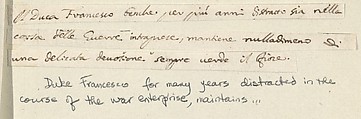 Il Duca Francesco benche per più anni distratto sia nelle
corso delle Guerre intraprese, mantiene nulladimeno di
una delicata devotione sempre verde il fiore.
Duke Francesco for many years distracted in the
course of the war enterprise, maintains ...